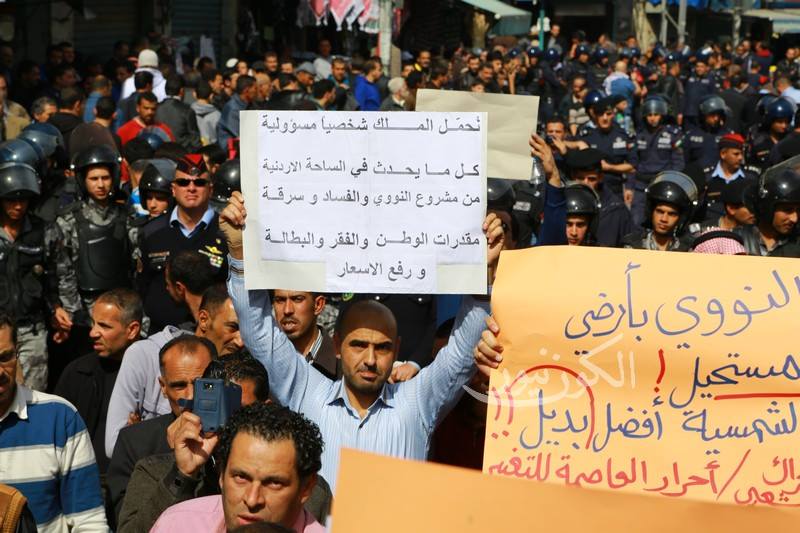 نُحمّل الملك شخصياً مسؤولية
كل ما يحدث في الساحة الاردنية
من مشروع النووي والفساد و سرقة
مقدرات الوطن والفقر والبطالة
و رفع الاسعار
النووي بأرضي
مستحيل !
الشمسية أفضل بديل !!
أحرار العاصمة للتغيير
الكون نيوز